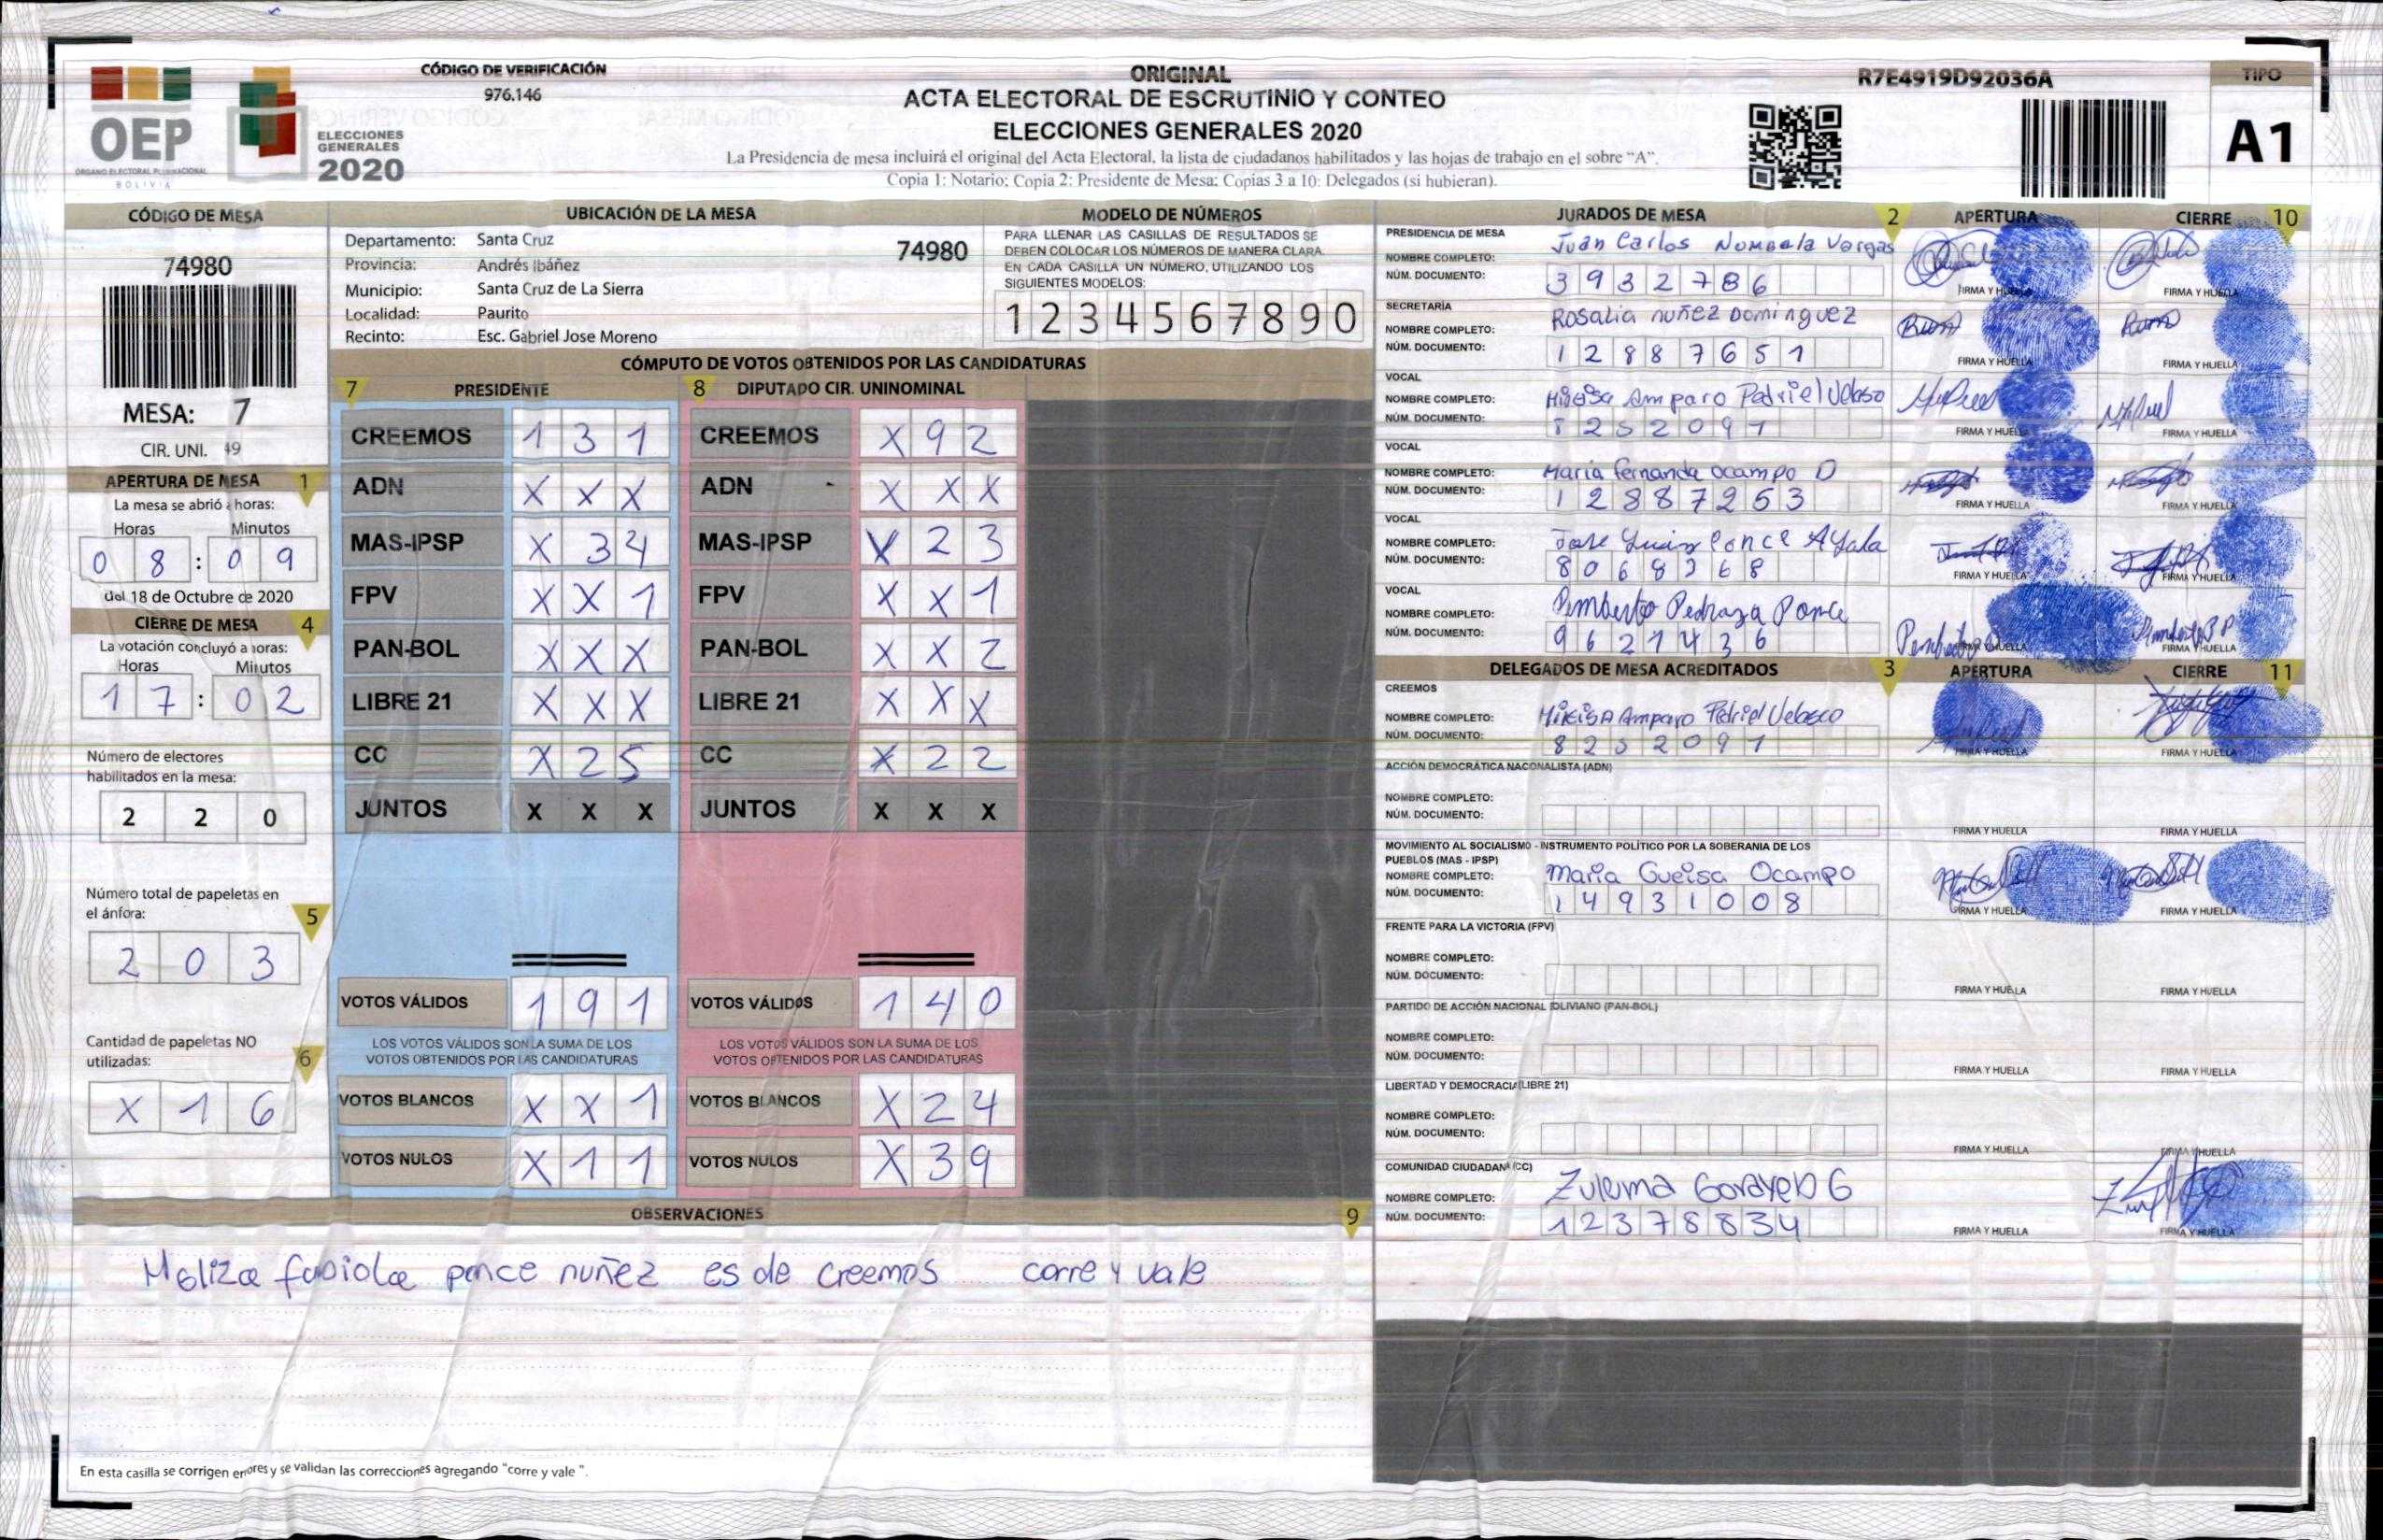 CÓDIGO DE VERIFICACIÓN
976.146
ORIGINAL
ACTA ELECTORAL DE ESCRUTINIO Y CONTEO
ELECCIONES GENERALES 2020
La Presidencia de mesa incluirá el original del Acta Electoral, la lista de ciudadanos habilitados y las hojas de trabajo en el sobre "A".
Copia 1: Notario; Copia 2: Presidente de Mesa; Copias 3 a 10: Delegados (si hubieran).
R7E4919D92036A
TIPO
A1
OEP
ÓRGANO ELECTORAL PLURINACIONAL
BOLIVIA
ELECCIONES
GENERALES
2020
CÓDIGO DE MESA
74980
MESA: 7
CIR. UNI. 49
APERTURA DE MESA 1
La mesa se abrió a horas:
Horas Minutos
0 8 : 0 9
del 18 de Octubre de 2020
CIERRE DE MESA 4
La votación concluyó a horas:
Horas Minutos
1 7 : 0 2
Número de electores
habilitados en la mesa:
2 2 0
Número total de papeletas en
el ánfora: 5
2 0 3
Cantidad de papeletas NO
utilizadas: 6
X 1 6
UBICACIÓN DE LA MESA
Departamento: Santa Cruz
74980
Provincia: Andrés Ibáñez
Municipio: Santa Cruz de La Sierra
Localidad: Paurito
Recinto: Esc. Gabriel Jose Moreno
MODELO DE NÚMEROS
PARA LLENAR LAS CASILLAS DE RESULTADOS SE
DEBEN COLOCAR LOS NÚMEROS DE MANERA CLARA
EN CADA CASILLA UN NÚMERO, UTILIZANDO LOS
SIGUIENTES MODELOS:
1 2 3 4 5 6 7 8 9 0
CÓMPUTO DE VOTOS OBTENIDOS POR LAS CANDIDATURAS
7 PRESIDENTE 8 DIPUTADO CIR. UNINOMINAL
CREEMOS 1 3 1 CREEMOS X 9 2
ADN X X X ADN X X X
MAS-IPSP X 3 4 MAS-IPSP X 2 3
FPV X X 1 FPV X X 1
PAN-BOL X X X PAN-BOL X X 2
LIBRE 21 X X X LIBRE 21 X X X
CC X 2 5 CC X 2 2
JUNTOS X X X JUNTOS X X X
VOTOS VÁLIDOS 1 9 1 VOTOS VÁLIDOS 1 4 0
LOS VOTOS VÁLIDOS SON LA SUMA DE LOS LOS VOTOS VÁLIDOS SON LA SUMA DE LOS
VOTOS OBTENIDOS POR LAS CANDIDATURAS VOTOS OBTENIDOS POR LAS CANDIDATURAS
VOTOS BLANCOS X X 1 VOTOS BLANCOS X 2 4
VOTOS NULOS X 1 1 VOTOS NULOS X 3 9
OBSERVACIONES 9
Meliza fabiola ponce nuñez es de creemos corre y vale
En esta casilla se corrigen errores y se validan las correcciones agregando "corre y vale ".
JURADOS DE MESA 2 APERTURA CIERRE 10
PRESIDENCIA DE MESA
NOMBRE COMPLETO: Juan Carlos Vargas
NÚM. DOCUMENTO: 3 9 3 2 7 8 6
FIRMA Y HUELLA FIRMA Y HUELLA
SECRETARÍA
NOMBRE COMPLETO: Rosalia nuñez Dominguez
NÚM. DOCUMENTO: 1 2 8 8 7 6 5 1
FIRMA Y HUELLA FIRMA Y HUELLA
VOCAL
NOMBRE COMPLETO: Amparo Pedriel Velasco
NÚM. DOCUMENTO: 8 2 5 2 0 9 1
FIRMA Y HUELLA FIRMA Y HUELLA
VOCAL
NOMBRE COMPLETO: Maria fernanda ocampo D
NÚM. DOCUMENTO: 1 2 8 8 7 2 5 3
FIRMA Y HUELLA FIRMA Y HUELLA
VOCAL
NOMBRE COMPLETO: Jose Luis Ponce Ayala
NÚM. DOCUMENTO: 8 0 6 8 2 6 8
FIRMA Y HUELLA FIRMA Y HUELLA
VOCAL
NOMBRE COMPLETO: Pedraza Ponce
NÚM. DOCUMENTO: 9 6 2 1 4 3 6
FIRMA Y HUELLA FIRMA Y HUELLA
DELEGADOS DE MESA ACREDITADOS 3 APERTURA CIERRE 11
CREEMOS
NOMBRE COMPLETO: Amparo Pedriel Velasco
NÚM. DOCUMENTO: 8 2 5 2 0 9 1
FIRMA Y HUELLA FIRMA Y HUELLA
ACCIÓN DEMOCRÁTICA NACIONALISTA (ADN)
NOMBRE COMPLETO:
NÚM. DOCUMENTO:
FIRMA Y HUELLA FIRMA Y HUELLA
MOVIMIENTO AL SOCIALISMO - INSTRUMENTO POLÍTICO POR LA SOBERANIA DE LOS
PUEBLOS (MAS - IPSP)
NOMBRE COMPLETO: Maria Gueisa Ocampo
NÚM. DOCUMENTO: 1 4 9 3 1 0 0 8
FIRMA Y HUELLA FIRMA Y HUELLA
FRENTE PARA LA VICTORIA (FPV)
NOMBRE COMPLETO:
NÚM. DOCUMENTO:
FIRMA Y HUELLA FIRMA Y HUELLA
PARTIDO DE ACCIÓN NACIONAL BOLIVIANO (PAN-BOL)
NOMBRE COMPLETO:
NÚM. DOCUMENTO:
FIRMA Y HUELLA FIRMA Y HUELLA
LIBERTAD Y DEMOCRACIA (LIBRE 21)
NOMBRE COMPLETO:
NÚM. DOCUMENTO:
FIRMA Y HUELLA FIRMA Y HUELLA
COMUNIDAD CIUDADANA (CC)
NOMBRE COMPLETO: Zulema Gorayeb G
NÚM. DOCUMENTO: 1 2 3 7 8 8 3 4
FIRMA Y HUELLA FIRMA Y HUELLA